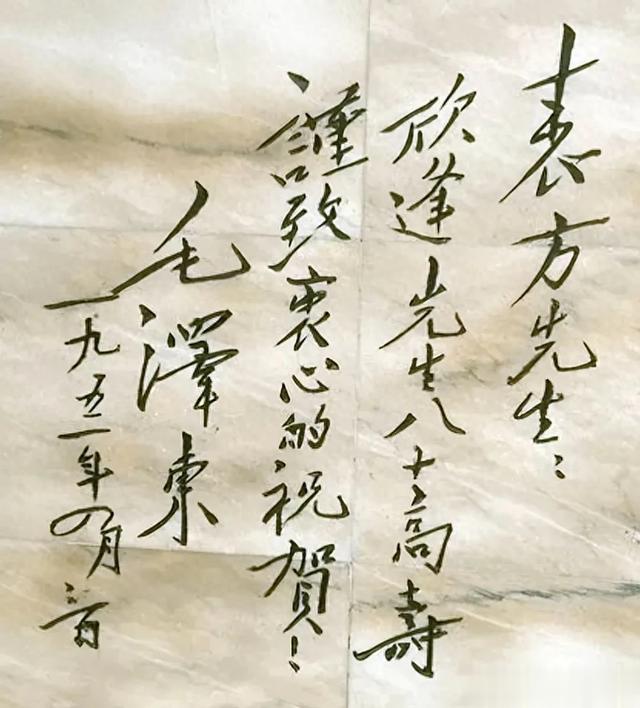 表方先生：
欣逢先生八十高壽
謹致衷心的祝賀！
毛澤東
一九五一年四月日